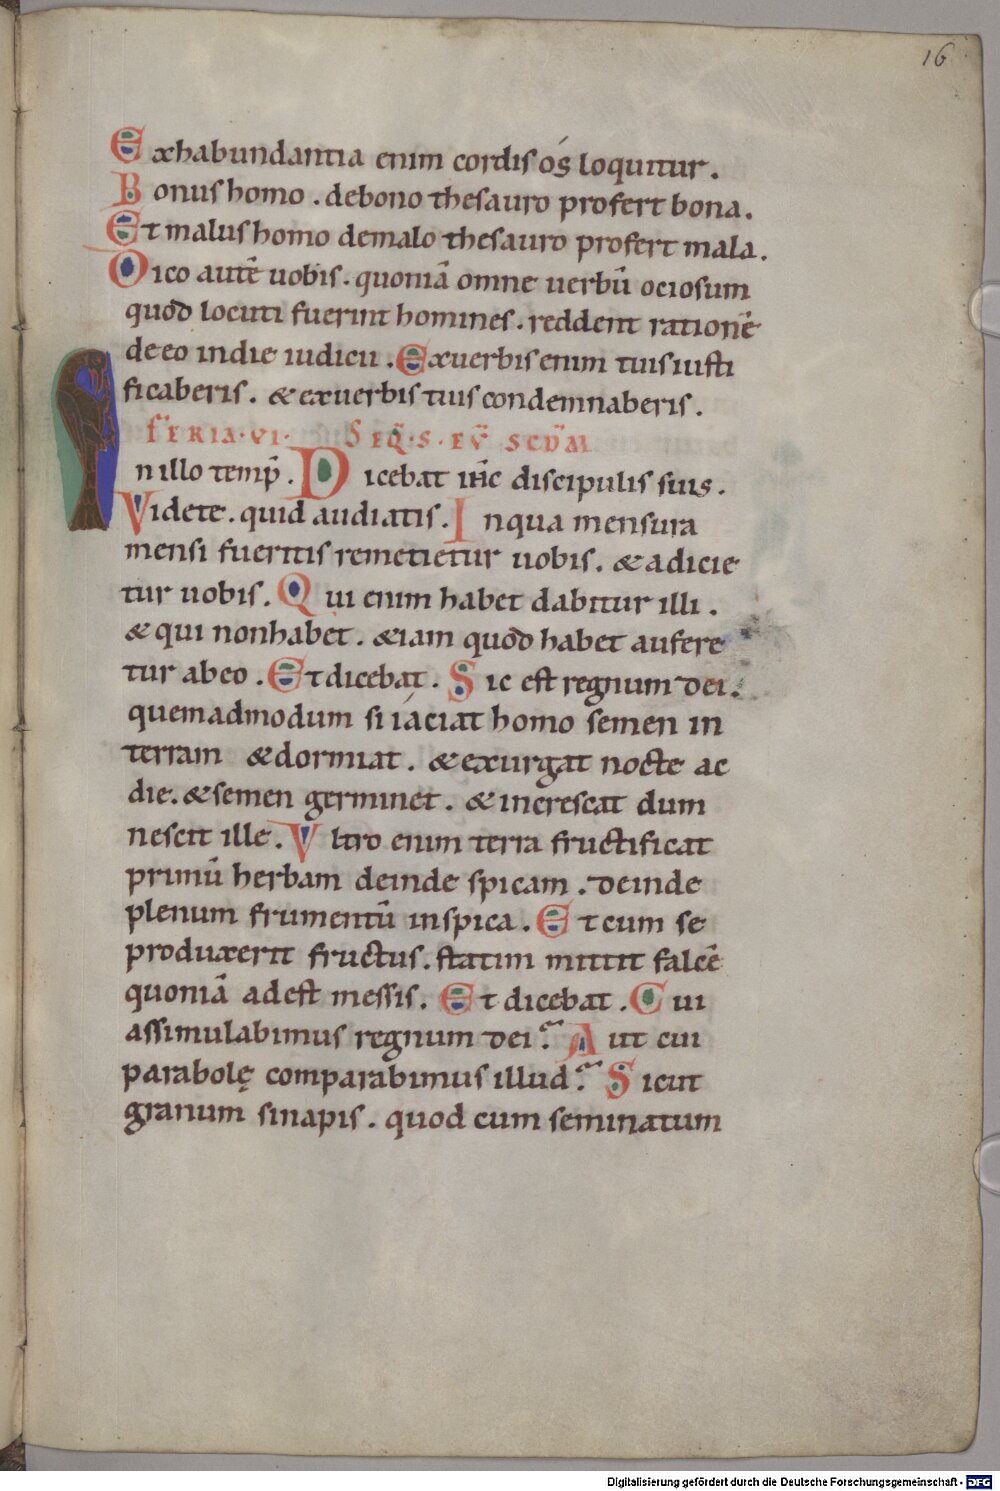 16
Exhabundantia enim cordis os loquitur.
Bonus homo. debono thesauro profert bona.
Et malus homo demalo thesauro profert mala.
Dico autē uobis. quoniā omne uerbū ociosum
quod locuti fuerint homines. reddent rationē
de eo indie iudicii. Exuerbis enim tuis iusti
ficaberis. & exuerbis tuis condemnaberis.
FERIA·VI· SEQ̄·S·EV̄ SCD̄M
In illo temp̄. Dicebat ih̄c discipulis suis.
Videte. quid audiatis. Inqua mensura
mensi fueritis remetietur uobis. & adicie
tur uobis. Qui enim habet dabitur illi.
& qui nonhabet. & iam quod habet aufere
tur abeo. Et dicebat. Sic est regnum dei.
quemadmodum si iáciat homo semen in
terram & dormiat. & exurgat nocte ac
die. & semen germinet. & increscat dum
nescit ille. Vltro enim terra fructificat
primū herbam deinde spicam. deinde
plenum frumentū inspica. Et cum se
produxerit fructus. statim mittit falcē
quoniā adest messis. Et dicebat. Cui
assimulabimus regnum dei? Aut cui
parabolę comparabimus illud? Sicut
granum sinapis. quod cum seminatum
Digitalisierung gefördert durch die Deutsche Forschungsgemeinschaft - DFG